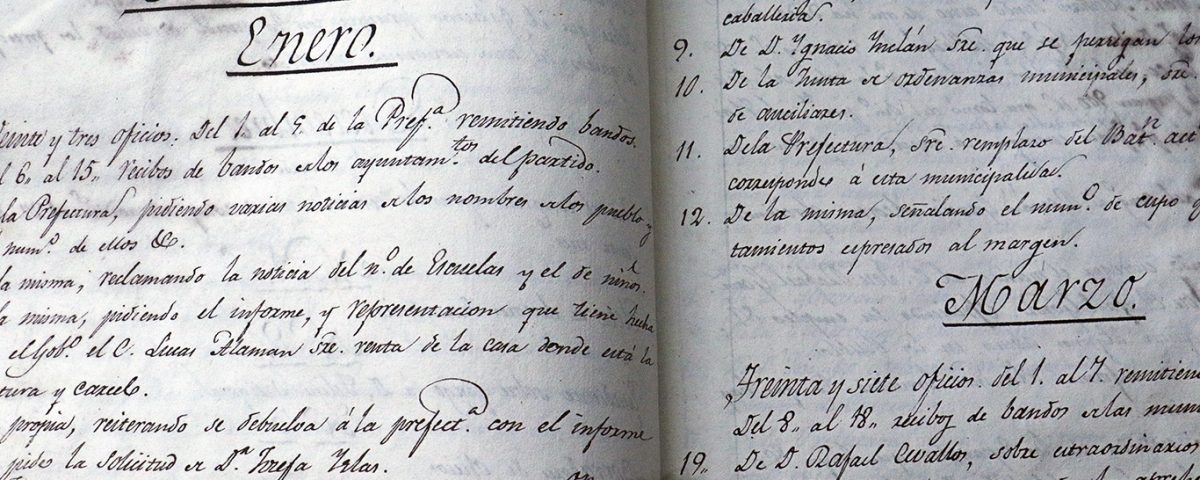 Enero.
Veinte y tres oficios. Del 1. al 5. de la Pref.ª remitiendo bandos.
l 6. al 15,, recibos de bandos a los ayuntam.tos del partido.
la Prefectura, pidiendo varias noticias a los nombres a los pueblos y
num.º de ellos &c.
la misma, reclamando la noticia del n.º de Escuelas y el de niños.
a misma, pidiendo el informe, y representacion que tiene hecha
el Gob.º el C. Lucas Alaman sre. renta de la casa donde está la
tura y carcel.
propia, reiterando se debuelva á la prefect.ª con el informe
pide la solicitud de D.ª Josefa
caballeria.
9. De D. Ygnacio Ynclán sre. que se persigan los
10. De la Junta de ordenanzas municipales, sre.
de auciliares.
11. De la Prefectura, sre. remplazo del Bat.n
corresponde á esta municipalidad.
12. De la misma, señalando el num.º de cupo
tamientos espresados al margen.
Marzo.
Treinta y siete oficios. del 1. al 7. remitiendo
Del 8,, al 18,, recibos de bandos a las
19,, De D. Rafael Cevallos, sobre estraordinarios